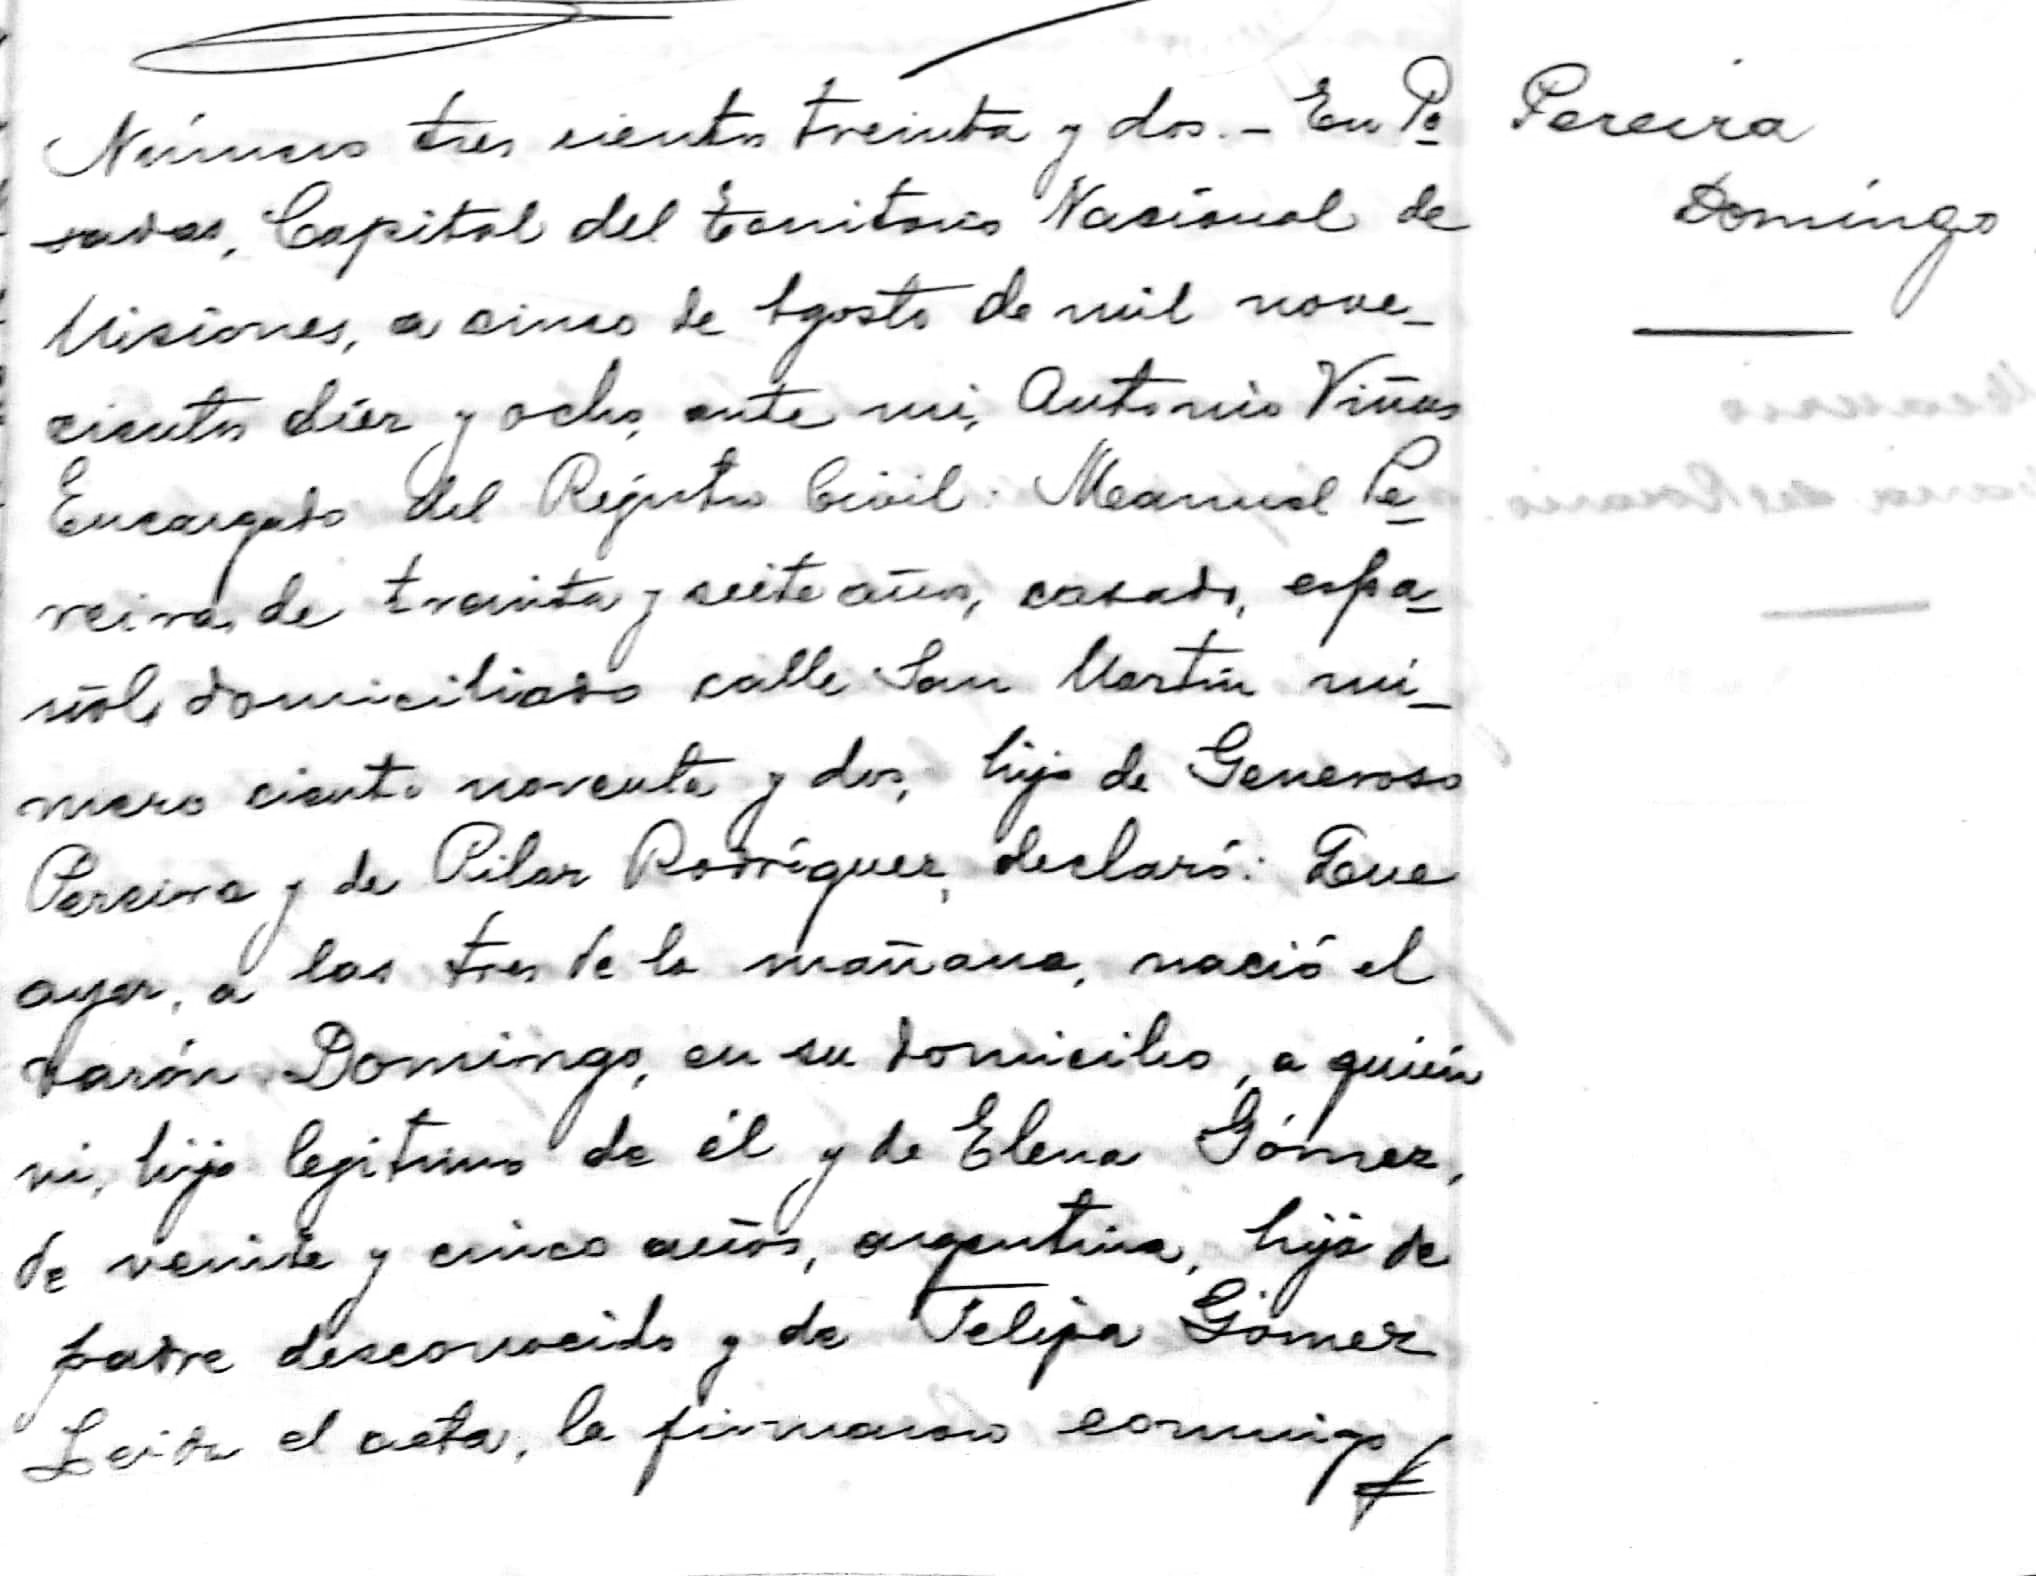 Número tres cientos treinta y dos.- En Po-
sadas, Capital del territorio Nacional de
Misiones, a cinco de Agosto de mil nove-
cientos diez y ocho, ante mi, Antonio Viñas
Encargado del Registro Civil. Manuel Pe-
reira, de treinta y siete años, casado, espa-
ñol, domiciliado calle San Martín nú-
mero ciento noventa y dos, hijo de Generoso
Pereira y de Pilar Rodríguez, declaró: Que
ayer, a las tres de la mañana, nació el
varón Domingo, en su domicilio, a quién
vi, hijo legitimo de él y de Elena Gómez,
de veinte y cinco años, argentina, hija de
padre desconocido y de Felipa Gómez
Leida el acta, la firmaron conmigo
Pereira
Domíngo